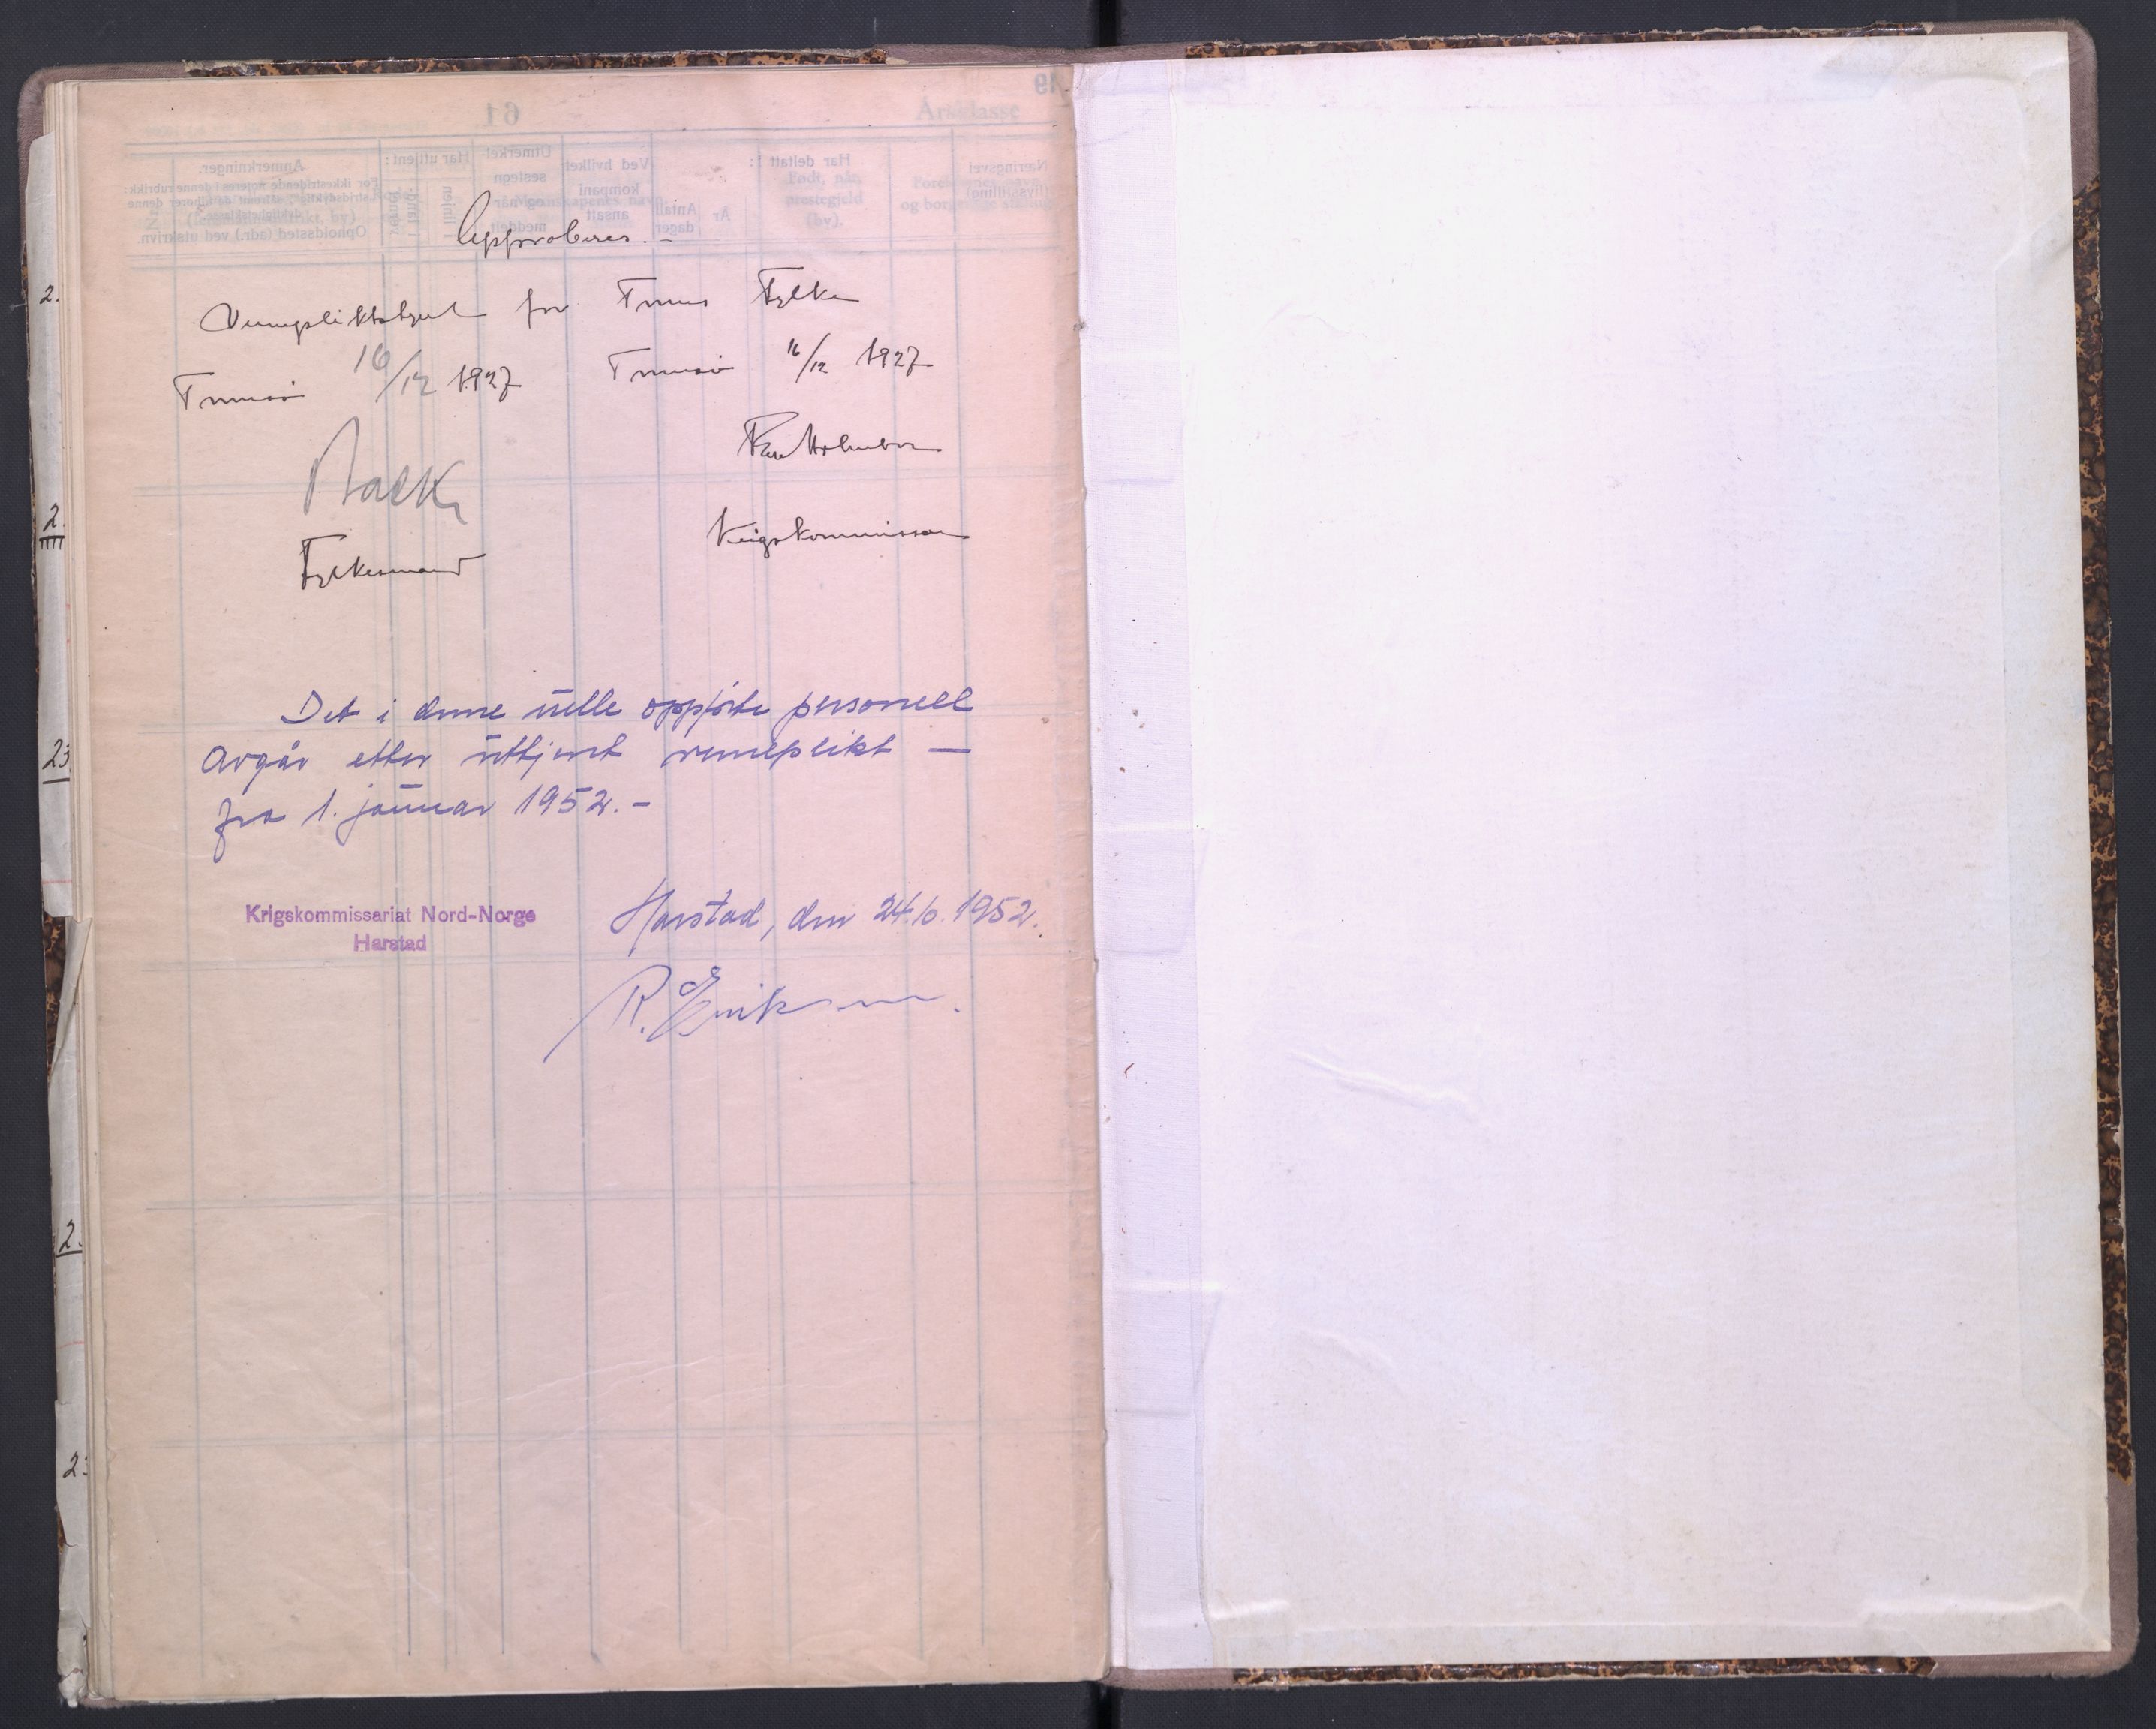 Approberes.-
Vernepliktstyret for Troms Fylke
Tromsö 16/12 1927 Tromsö 16/12 1927
Fylkesmand
Krigskommissær
Det i denne rulle oppførte personell
avgår etter uttjent verneplikt —
fra 1. januar 1952.-
Krigskommissariat Nord-Norge
Harstad
Harstad, den 24.10.1952.
R. Eriksen.
2.
2
23
2.
23